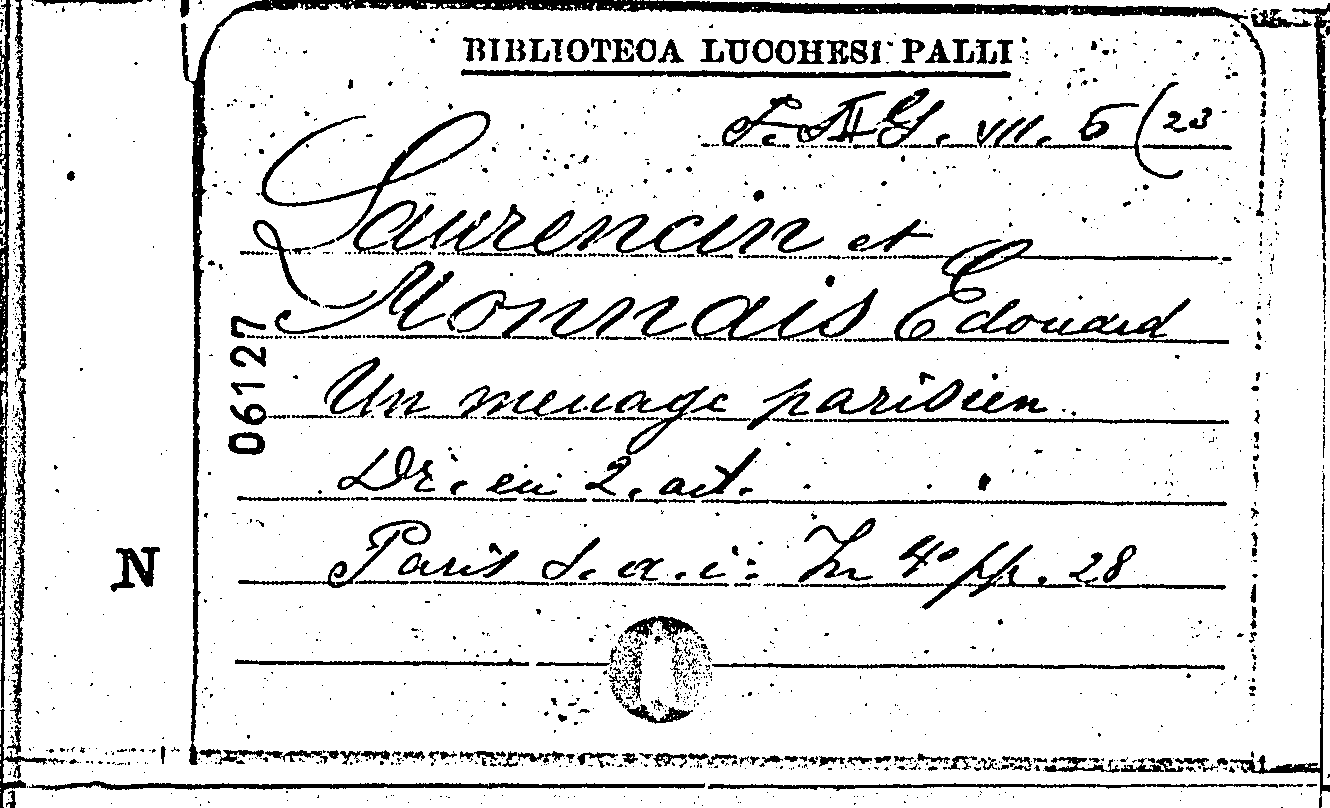 BIBLIOTECA LUCCHESI PALLI
VII. 5 (23
Laurencin et
Monnais Edouard
Un menage parisien
Dr. en 2. act.
Paris s. a. i. In 4° pp. 28
06127
N